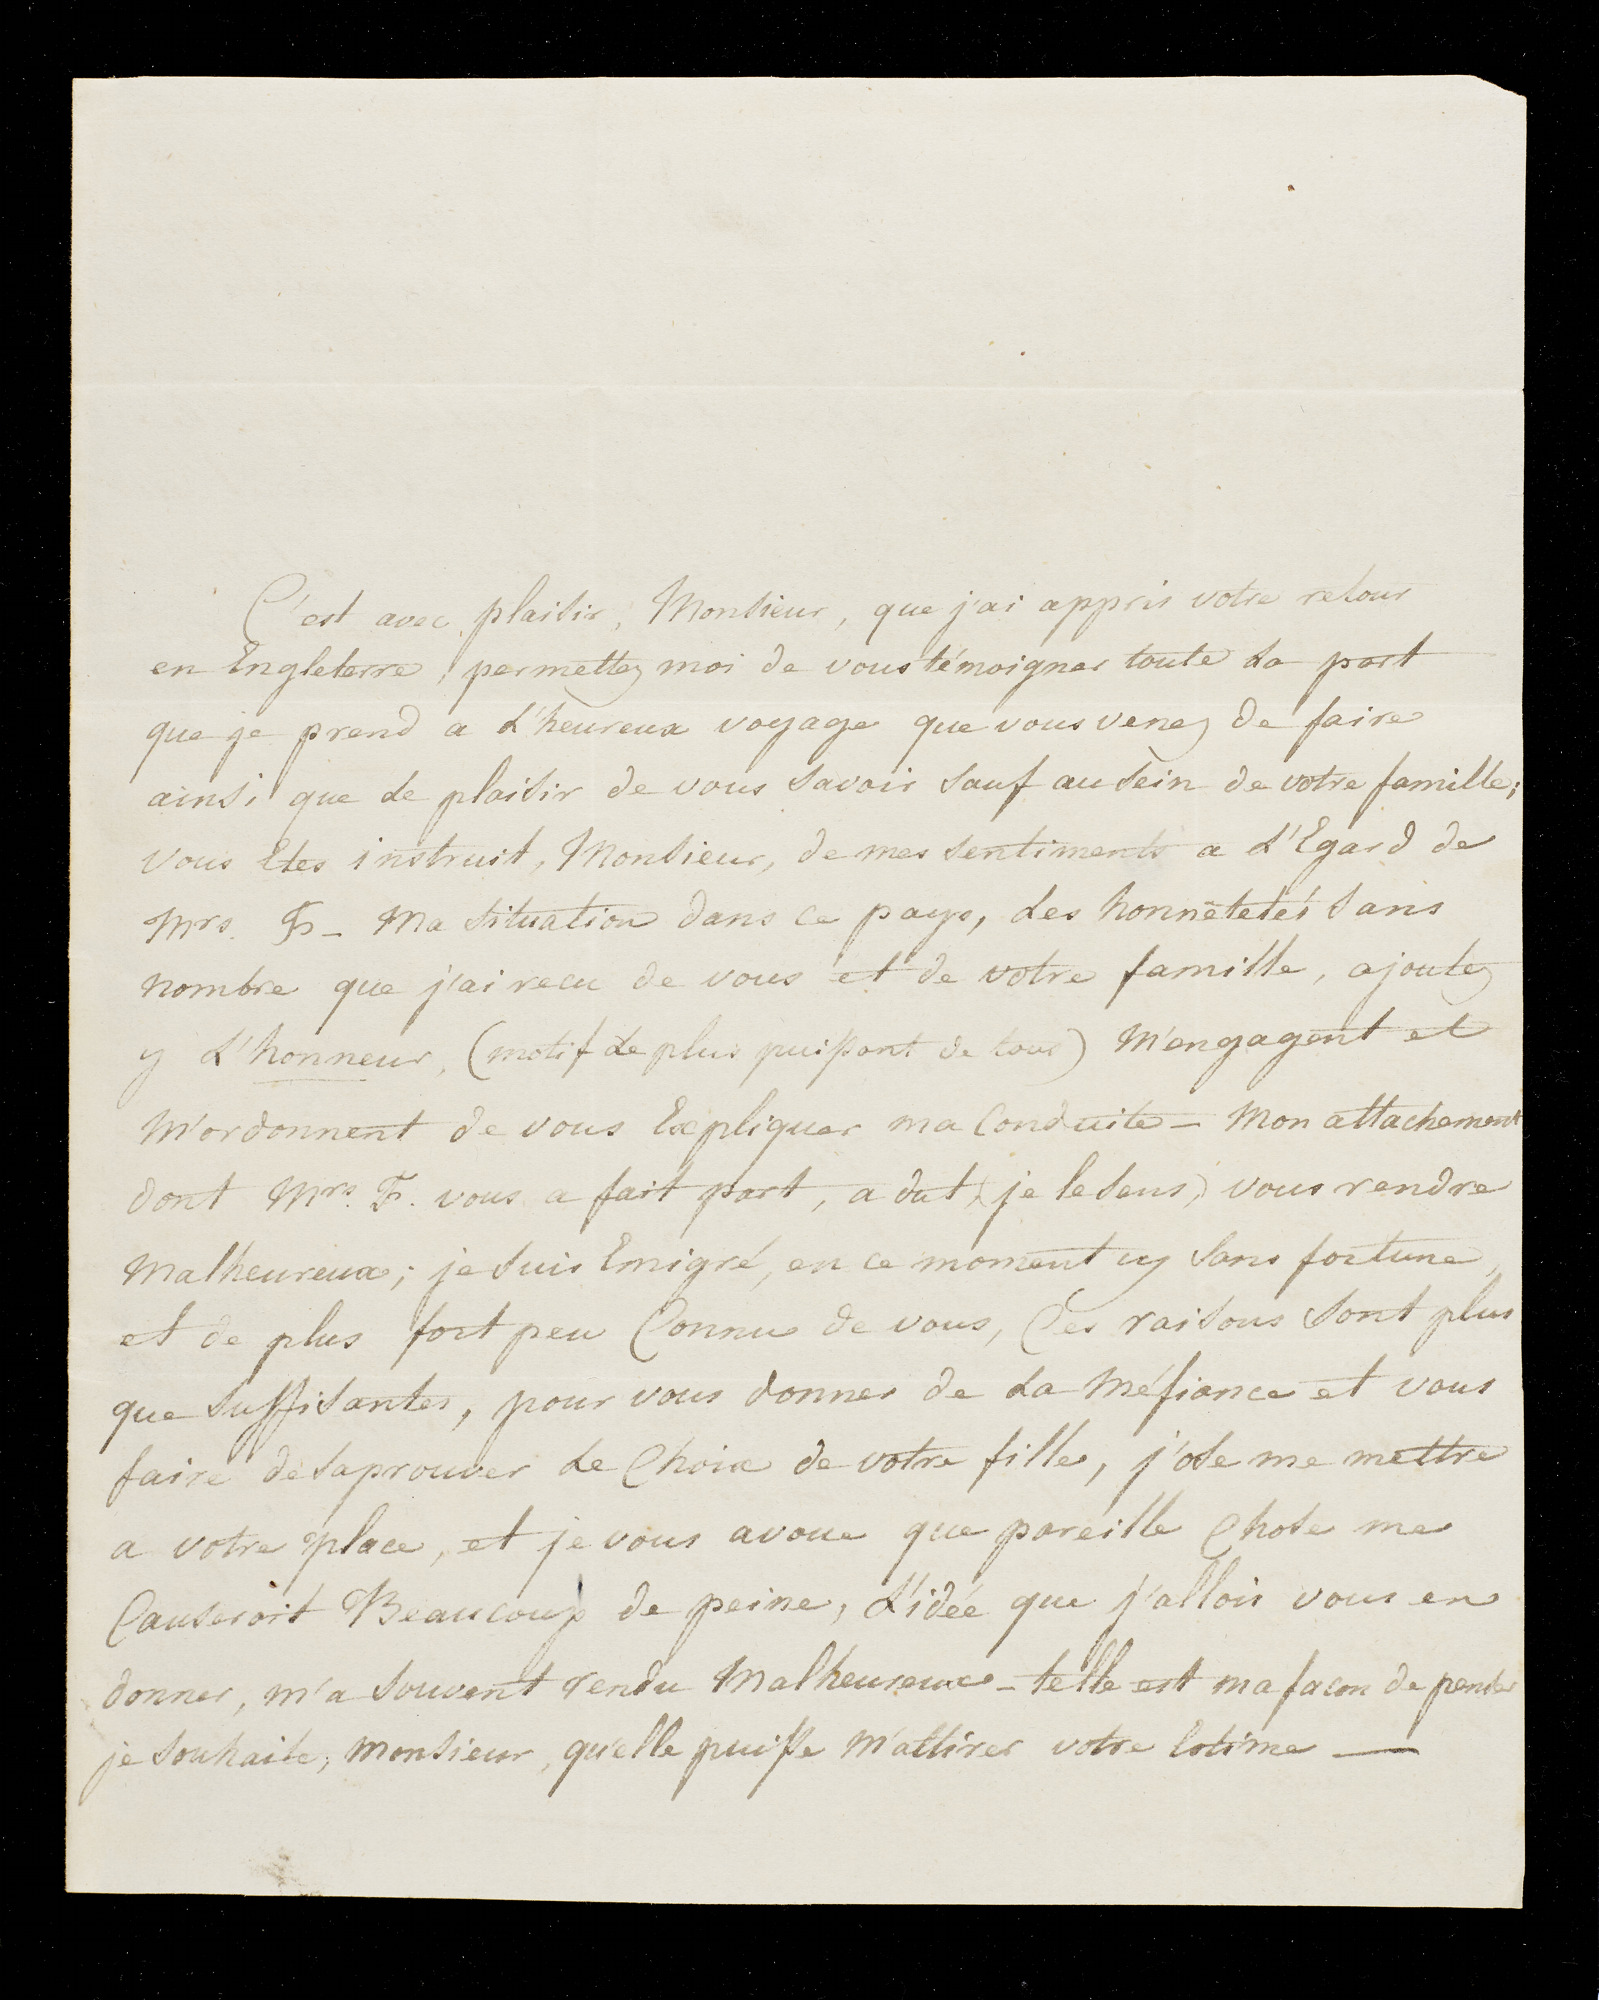 C'est avec plaisir, Monsieur, que j'ai appris votre retour
en Engleterre, permettez moi de vous témoigner toute la part
que je prend a l'heureux voyage que vous venez de faire
ainsi que le plaisir de vous savoir sauf au sein de votre famille;
vous Etes instruit, Monsieur, de mes sentiments a l'Egard de
Mrs. F_ Ma situation dans ce pays, les honnêtetés sans
nombre que j'ai recu de vous et de votre famille, ajoutez
y l'honneur, (motif le plus puissant de tous) m'engagent et
m'ordonnent de vous Expliquer ma Conduite_ Mon attachement
dont Mrs. F. vous a fait part, a dut (je le sens) vous rendre
Malheureux; je suis Emigré, en ce moment icy sans fortune,
et de plus fort peu Connu de vous, Ces raisons sont plus
que suffisantes, pour vous donner de la méfiance et vous
faire desaprouver le Choix de votre fille, j'ose me mettre
a votre place, et je vous avoue que pareille Chose me
Causeroit Beaucoup de peine, l'idée que j'allois vous en
donner, m'a souvent rendu Malheureux_ telle est ma facon de penser
je souhaite, monsieur, qu'elle puisse m'attirer votre Estime —